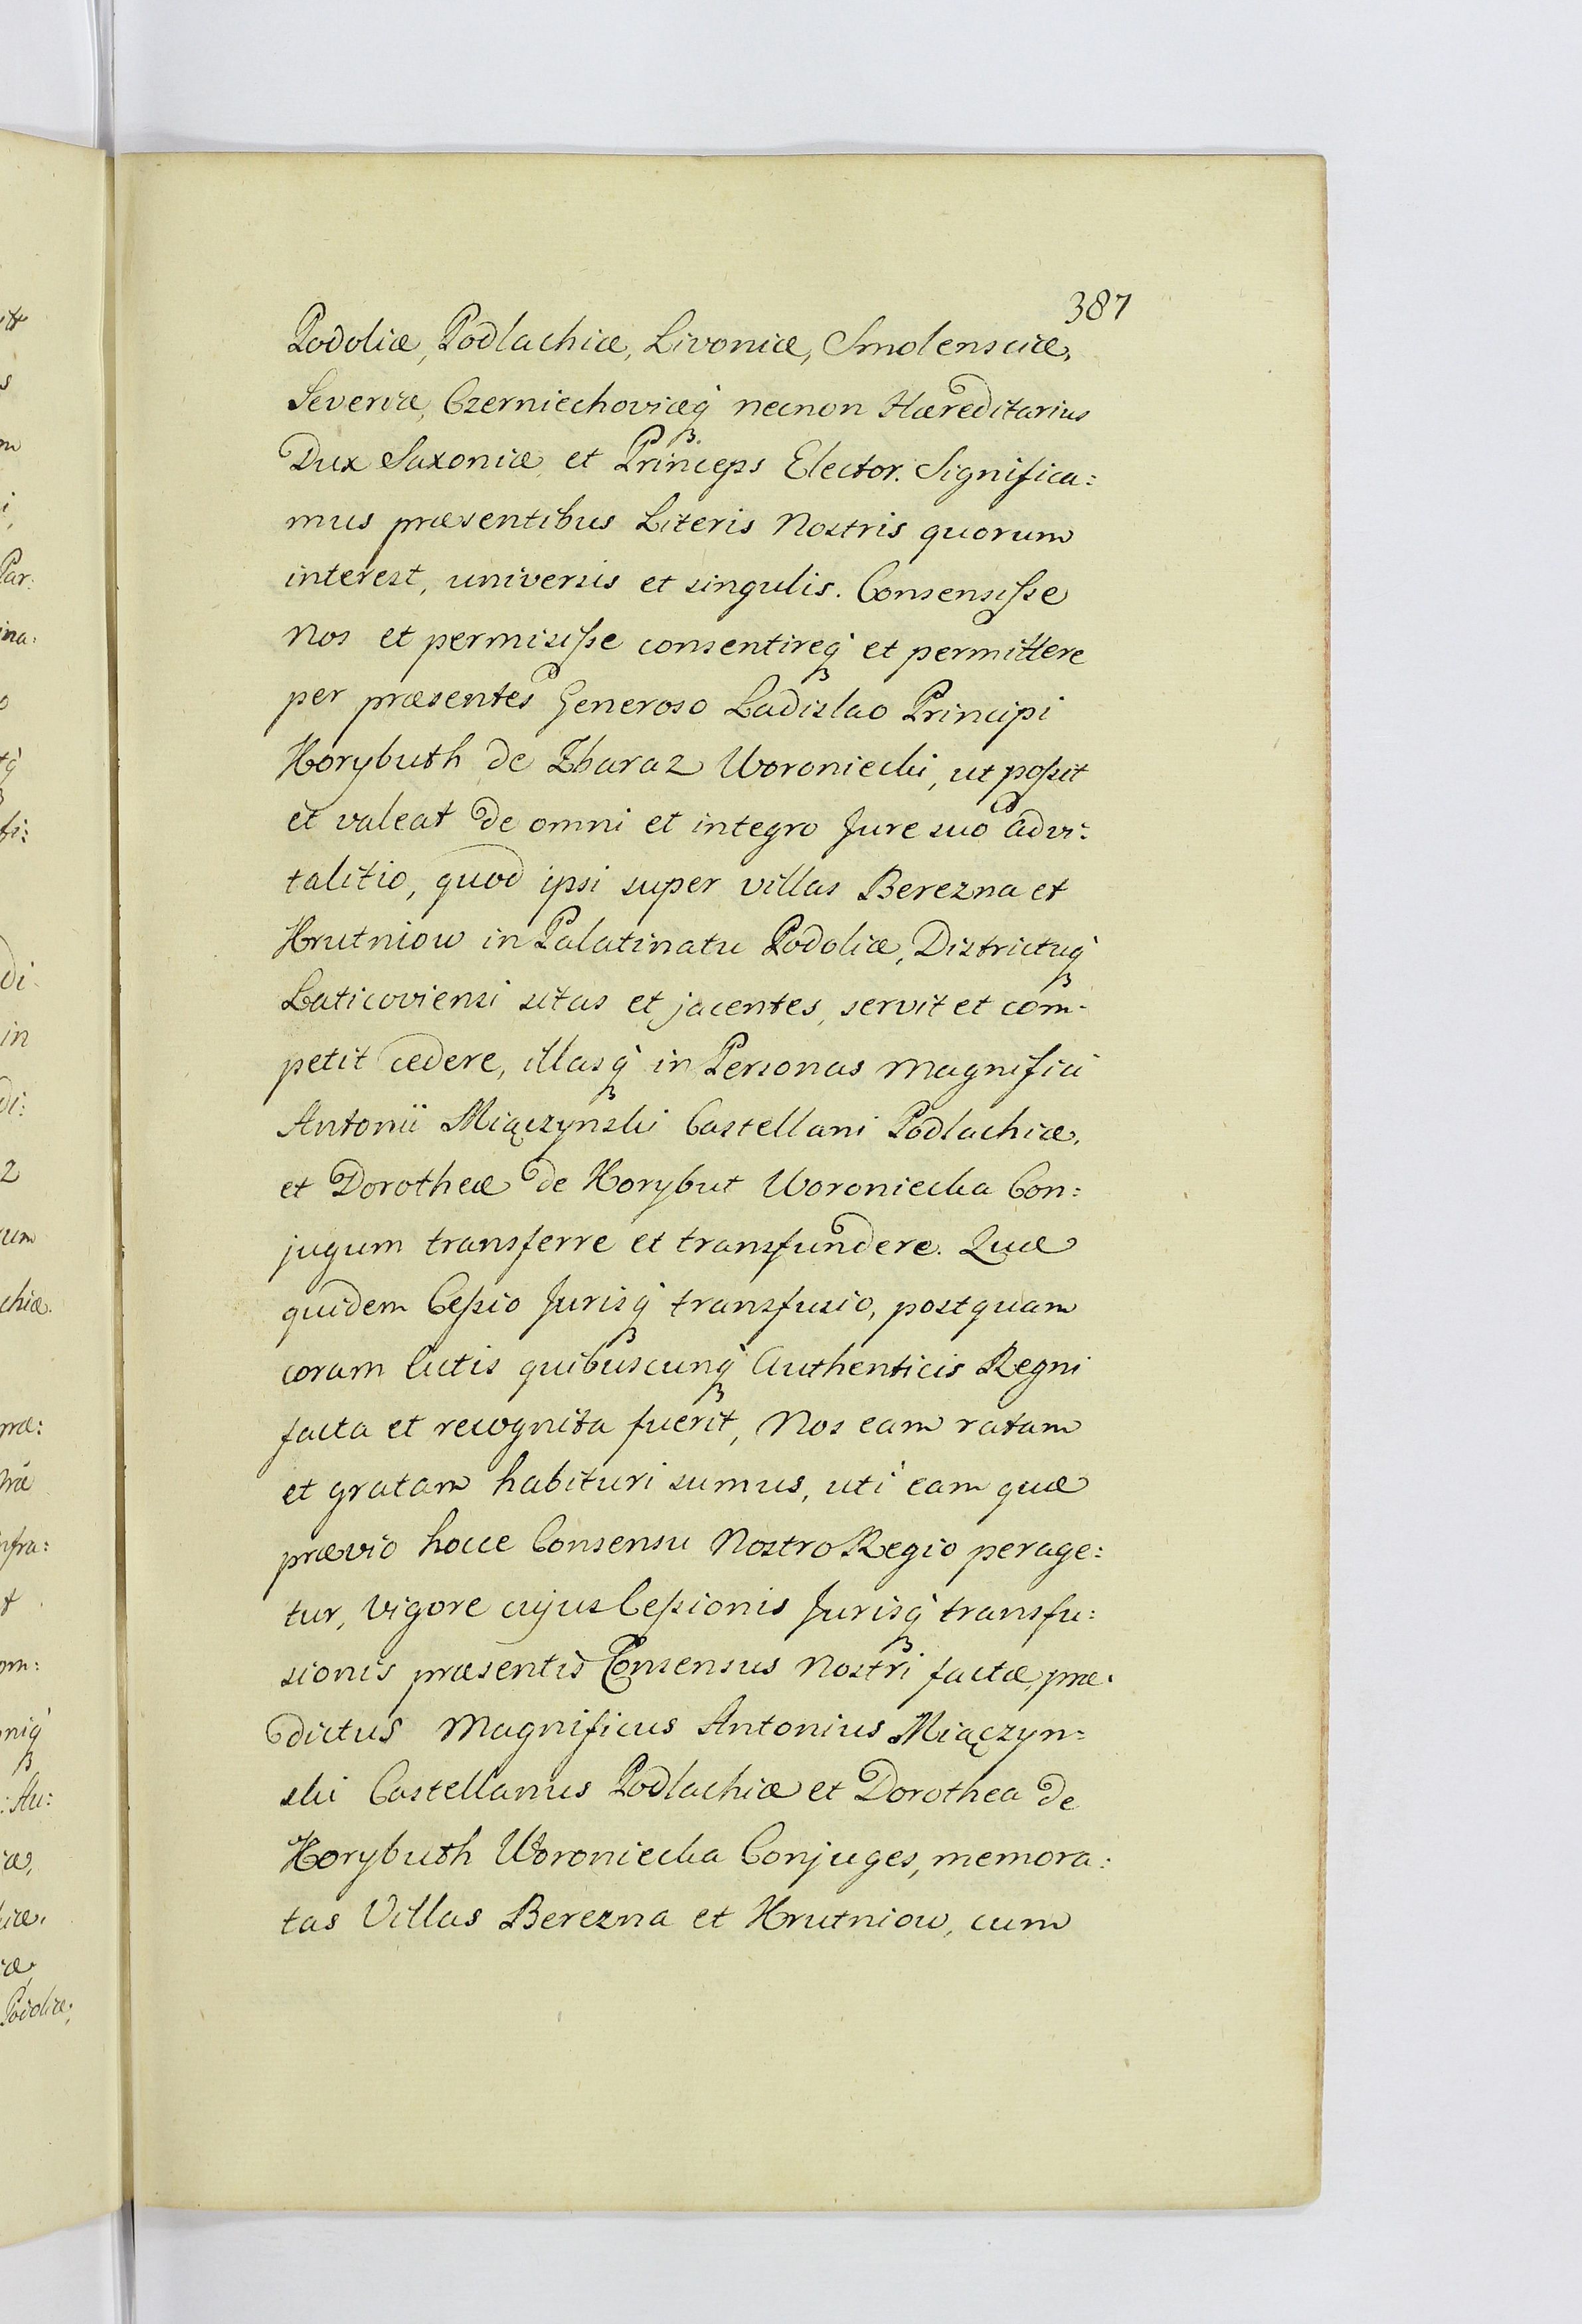 387
Podoliæ, Podlachiæ, Livoniæ, Smolensciæ,
Severiæ, Czerniechoviæq́ꝫ necnon Hæreditarius
Dux Saxoniæ et Princeps Elector. Significa:
mus præsentibus Literis Nostris quorum
interest, universis et singulis. Consensiſse
Nos et permisiſse consentireq́ꝫ et permittere
per præsentes Generoso Ladislao Principi
Korybuth de Zbaraz Woroniecki, ut poſsit
et valeat de omni et integro Jure suo advi:
talitio, quod ipsi super villas Berezna et
Hrutniow in Palatinatu Podoliæ, Districtuq́ꝫ
Laticoviensi sitas et jacentes, servit et com-
petit cedere, illasq́ꝫ in Personas Magnifici
Antonii Miączynski Castellani Podlachiæ,
et Dorotheæ de Korybut Woroniecka Con:
jugum transferre et transfundere. Quæ
quidem Ceſsio Jurisq́ꝫ transfusio, postquam
coram Actis quibuscunq́ꝫ Authenticis Regni
facta et recognita fuerit, Nos eam ratam
et gratam habituri sumus, uti eam quæ
prævio hocce Consensu Nostro Regio perage:
tur, vigore cujus Ceſsionis Jurisq́ꝫ transfu:
sionis præsentis Consensus Nostri factæ, præ:
dictus Magnificus Antonius Miączyn:
ski Castellanus Podlachiæ et Dorothea de
Korybuth Woroniecka Conjuges, memora:
tas Villas Berezna et Hrutniow, cum